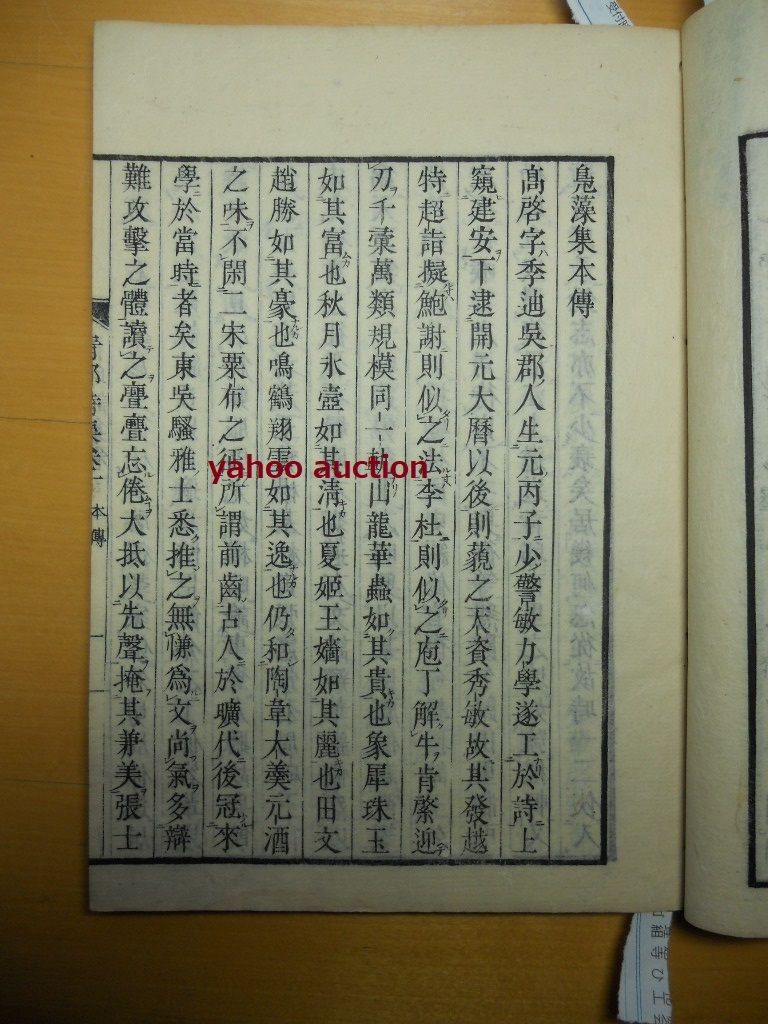 鳧藻集本傳
髙啓字季迪吳郡人生元丙子少警敏力學遂工於詩上
窺建安下逮開元大曆以後則藐之天資秀敏故其發越
特超詣擬鮑謝則似之法李杜則似之庖丁解牛肯綮迎
刃千彙萬類規模同一軌山龍華蟲如其貴也象犀珠玉
如其富也秋月氷壺如其淸也夏姬王嬙如其麗也田文
趙勝如其豪也鳴鶴翔雲如其逸也仍和陶韋大羹元酒
之味不閑二宋粟布之征所謂前齒古人於曠代後冠來
學於當時者矣東吳騷雅士悉推之無慊爲文尚氣多辯
難攻擊之體讀之亹亹忘倦大抵以先聲掩其兼美張士
本傳
一
yahoo auction